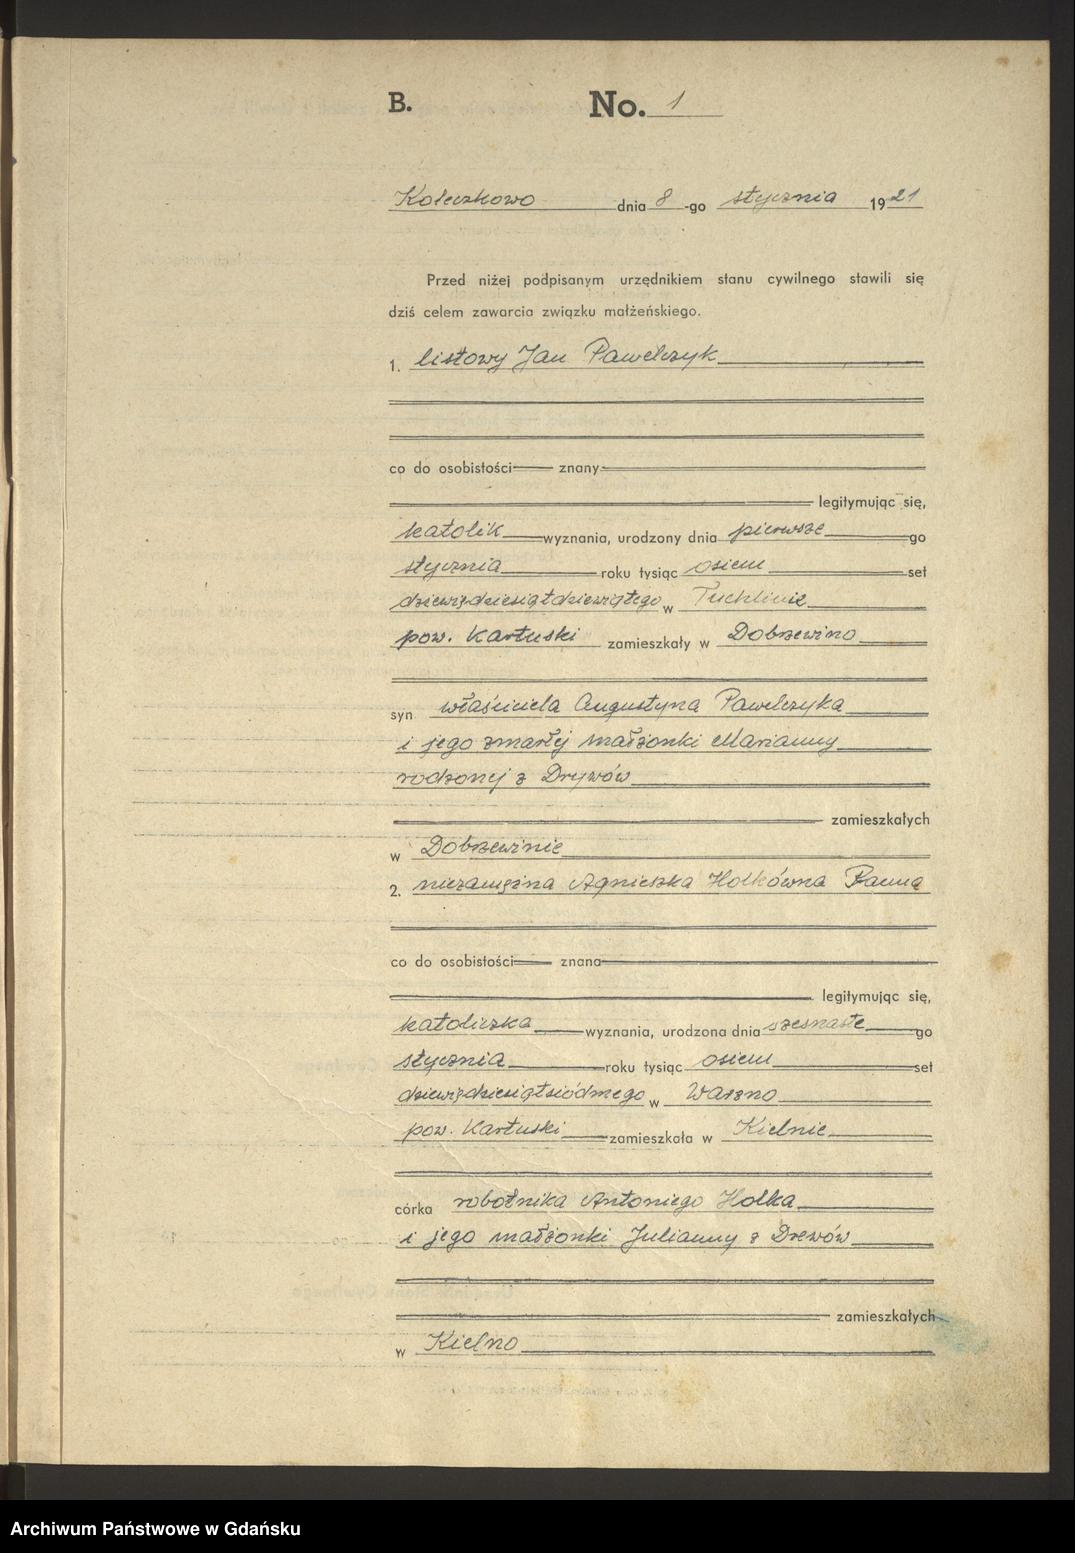 B. No. 1
Koleczkowo dnia 8 -go stycznia 1921
Przed niżej podpisanym urzędnikiem stanu cywilnego stawili się
dziś celem zawarcia związku małżeńskiego.
1. listowy Jan Pawelczyk
co do osobistości znany
legitymując się,
katolik wyznania, urodzony dnia pierwsze go
stycznia roku tysiąc osiem set
dziewięćdziesiątdziewiątego w Tuchlinie
pow. Kartuski zamieszkały w Dobrzewino
syn właściciela Augustyna Pawelczyka
i jego zmarłej małżonki Marianny
rodzonej z Drywów
zamieszkałych
w Dobrzewinie
2. niezamężna Agnieszka Holkówna Panna
co do osobistości znana
legitymując się,
katoliczka wyznania, urodzona dnia szesnaste go
stycznia roku tysiąc osiem set
dziewięćdziesiątsiódmego w Warzno
pow. Kartuski zamieszkała w Kielnie
córka robotnika Antoniego Holka
i jego małżonki Julianny z Drewów
zamieszkałych
w Kielno
Archiwum Państwowe w Gdańsku